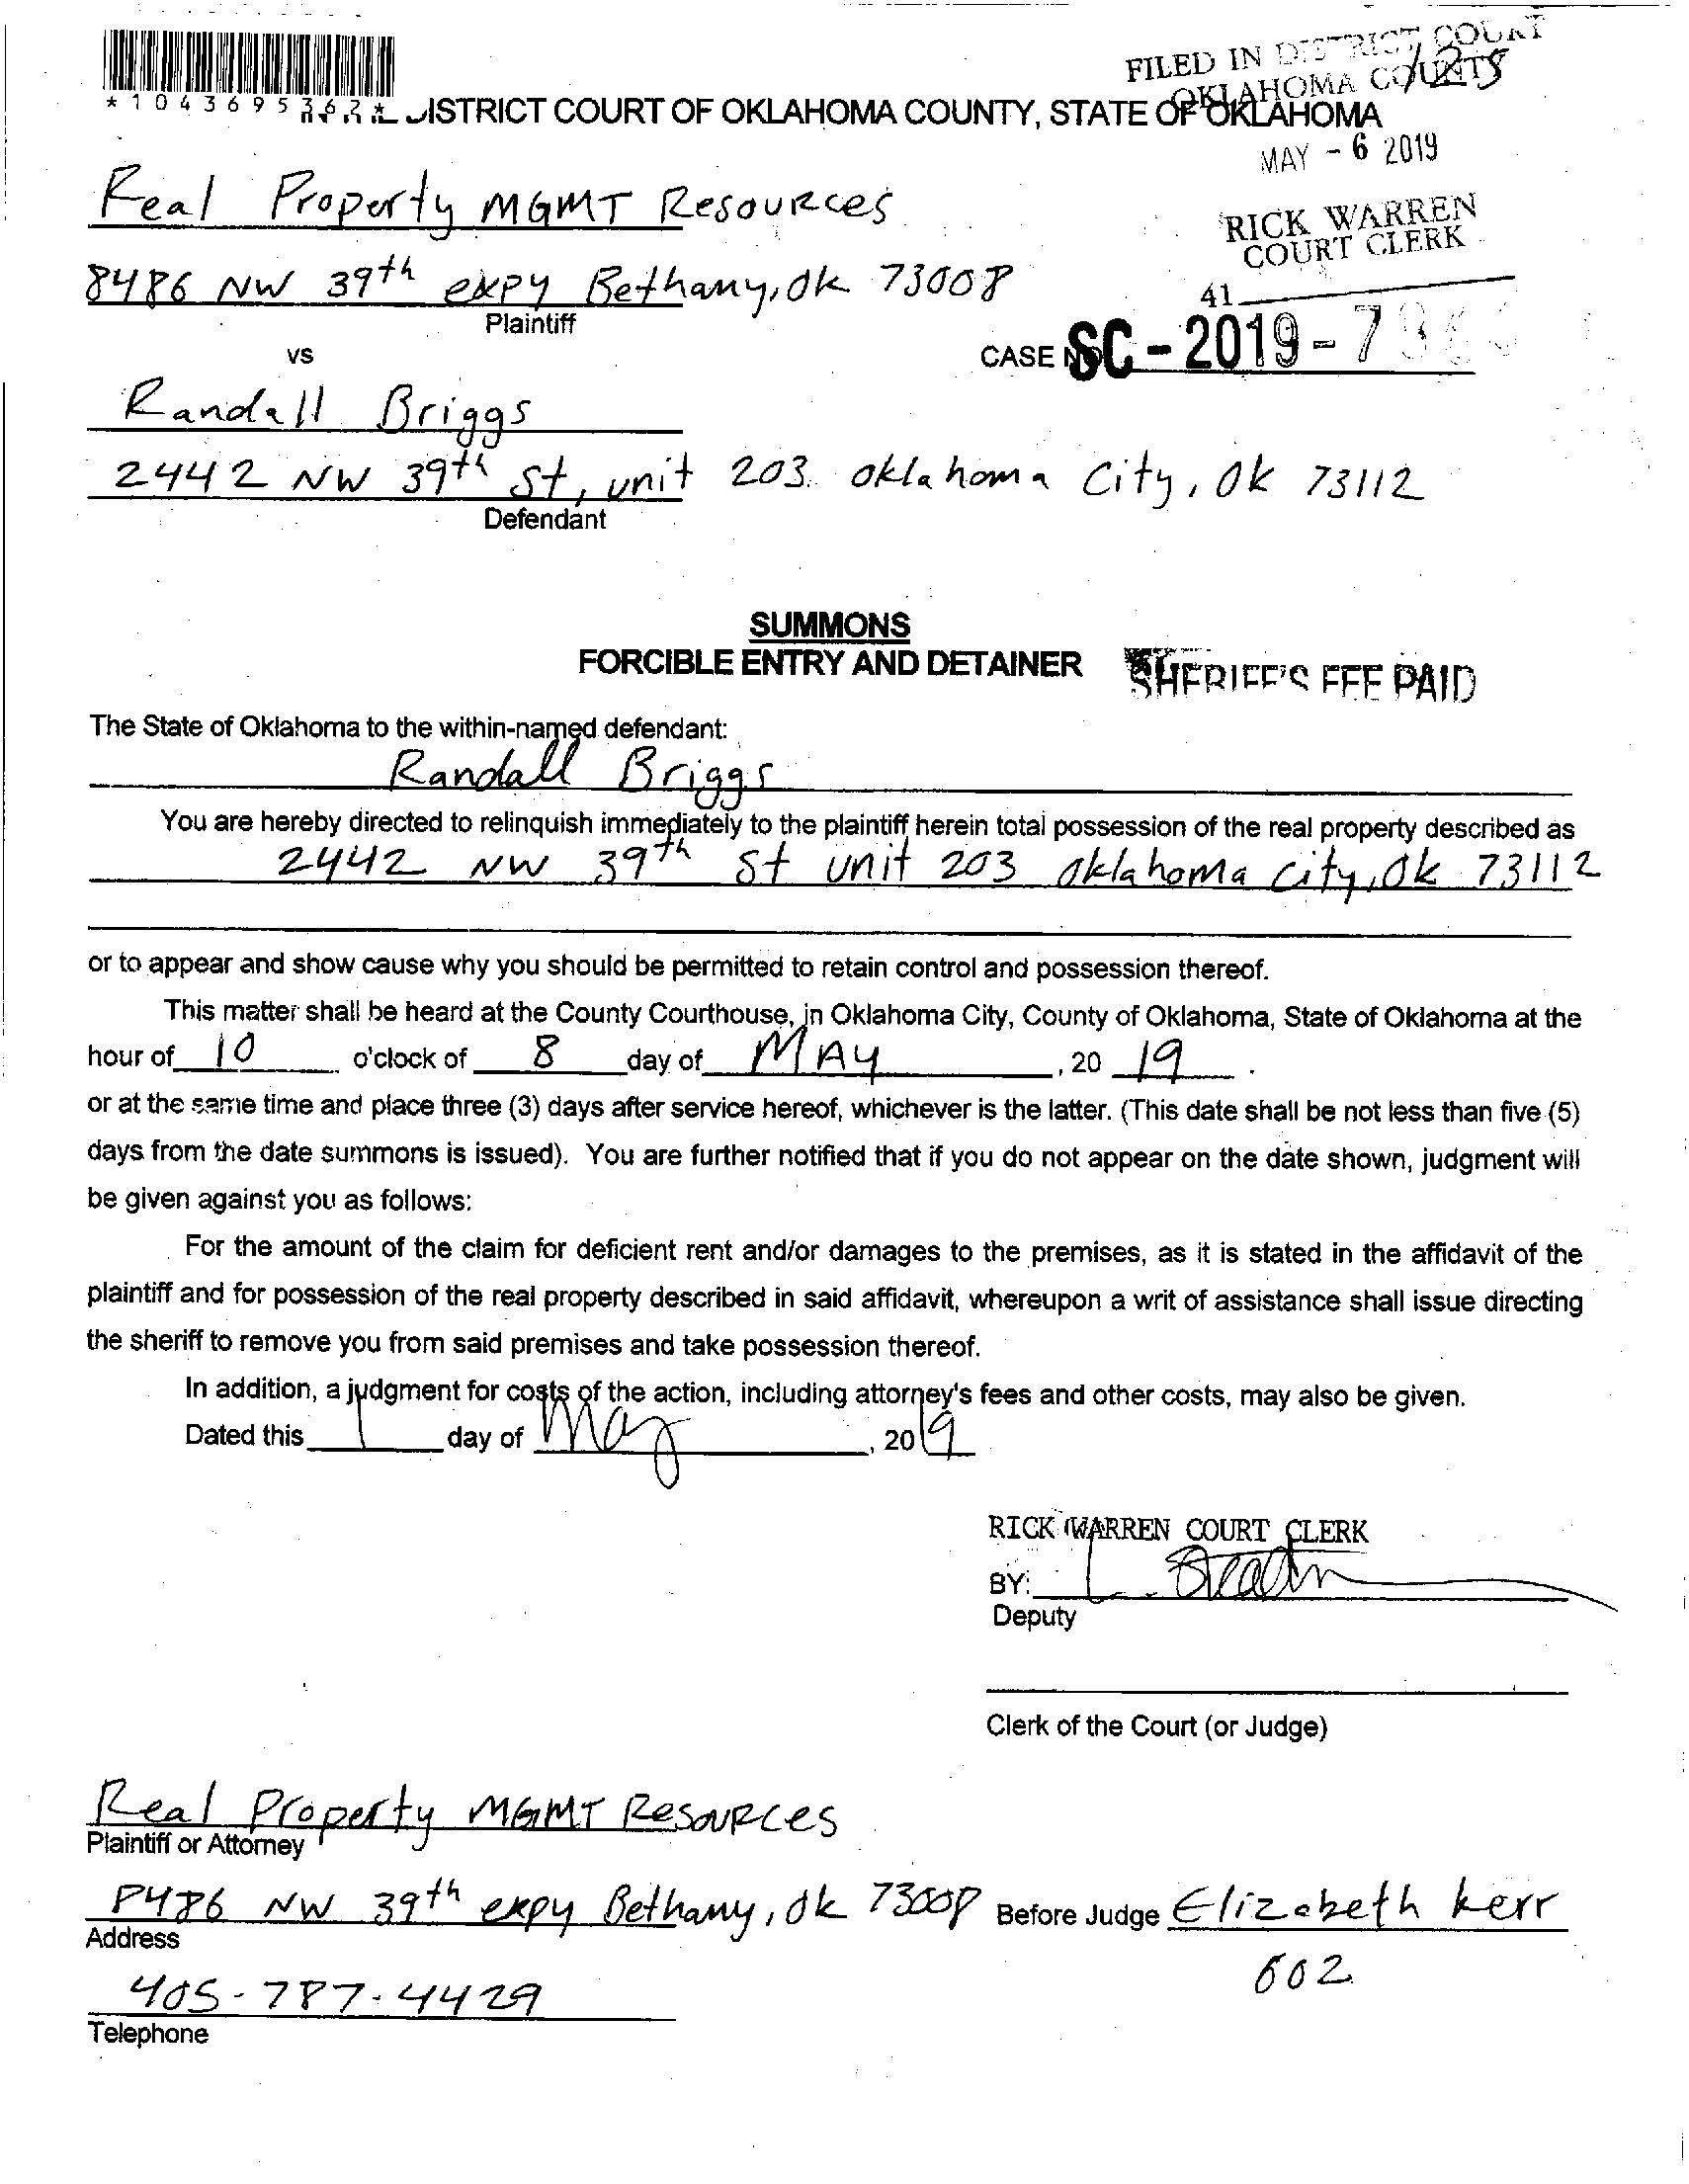 FILED IN DISTRICT COURT
OKLAHOMA COUNTY
*1043695362*
DISTRICT COURT OF OKLAHOMA COUNTY, STATE OF OKLAHOMA
MAY - 6 2019
Real Property MGMT Resources
RICK WARREN
COURT CLERK
8486 NW 39th expy Bethany, Ok 73008
41
Plaintiff
vs
CASE NO. SC-2019-7
Randall Briggs
2442 NW 39th St, unit 203 oklahoma City, Ok 73112
Defendant
SUMMONS
FORCIBLE ENTRY AND DETAINER
SHERIFF'S FEE PAID
The State of Oklahoma to the within-named defendant:
Randall Briggs
You are hereby directed to relinquish immediately to the plaintiff herein total possession of the real property described as
2442 NW 39th St unit 203 oklahoma City, Ok 73112
or to appear and show cause why you should be permitted to retain control and possession thereof.
This matter shall be heard at the County Courthouse, in Oklahoma City, County of Oklahoma, State of Oklahoma at the
hour of 10 o'clock of 8 day of MAY, 20 19.
or at the same time and place three (3) days after service hereof, whichever is the latter. (This date shall be not less than five (5)
days from the date summons is issued). You are further notified that if you do not appear on the date shown, judgment will
be given against you as follows:
For the amount of the claim for deficient rent and/or damages to the premises, as it is stated in the affidavit of the
plaintiff and for possession of the real property described in said affidavit, whereupon a writ of assistance shall issue directing
the sheriff to remove you from said premises and take possession thereof.
In addition, a judgment for costs of the action, including attorney's fees and other costs, may also be given.
Dated this 1 day of May, 2019
RICK WARREN COURT CLERK
BY: L.
Deputy
Clerk of the Court (or Judge)
Real Property MGMT Resources
Plaintiff or Attorney
8486 NW 39th expy Bethany, Ok 73008 Before Judge Elizabeth Kerr
Address
602
405-787-4429
Telephone